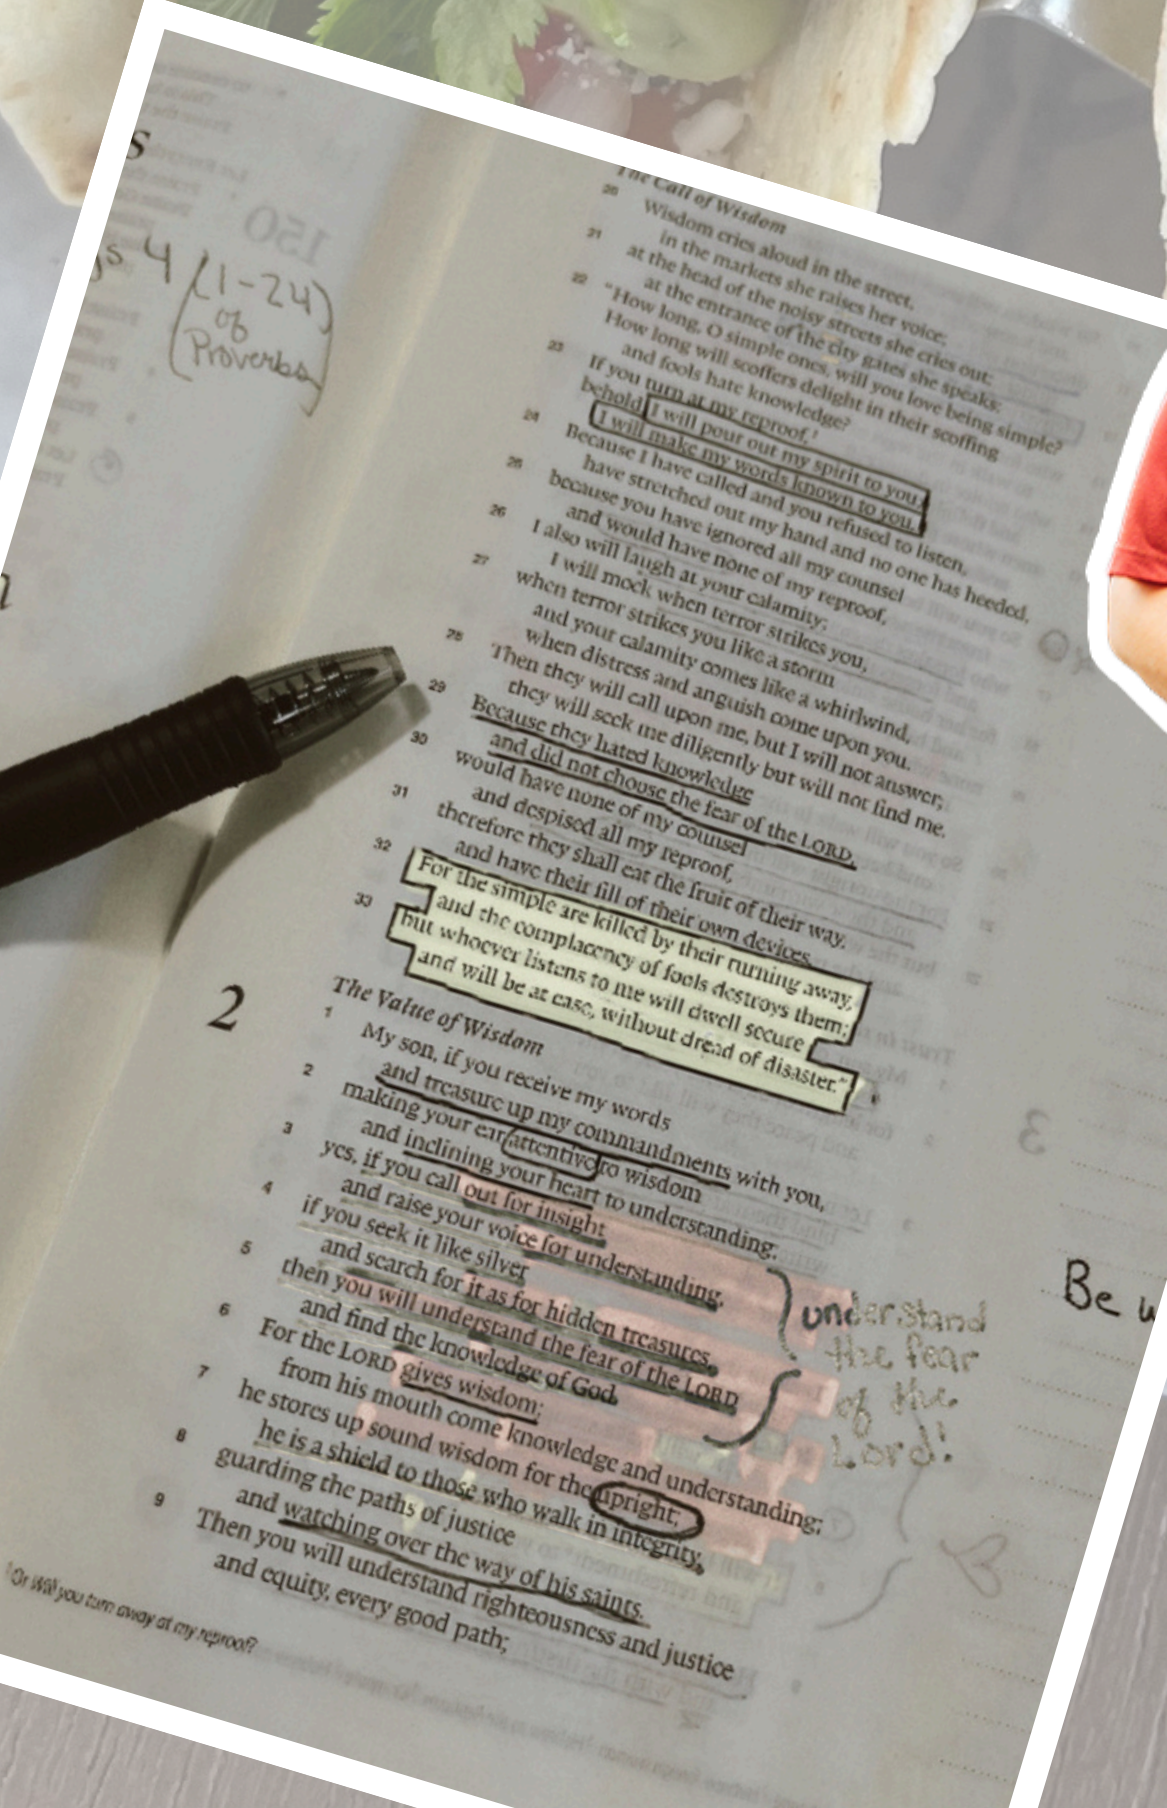 s
4 (1-24)
of
Proverbs
The Call of Wisdom
20 Wisdom cries aloud in the street,
in the markets she raises her voice;
21 at the head of the noisy streets she cries out;
at the entrance of the city gates she speaks:
22 "How long, O simple ones, will you love being simple?
How long will scoffers delight in their scoffing
and fools hate knowledge?
23 If you turn at my reproof,¹
behold, I will pour out my spirit to you,
I will make my words known to you.
24 Because I have called and you refused to listen,
have stretched out my hand and no one has heeded,
25 because you have ignored all my counsel
and would have none of my reproof,
26 I also will laugh at your calamity;
I will mock when terror strikes you,
27 when terror strikes you like a storm
and your calamity comes like a whirlwind,
when distress and anguish come upon you.
28 Then they will call upon me, but I will not answer;
they will seek me diligently but will not find me.
29 Because they hated knowledge
and did not choose the fear of the LORD,
30 would have none of my counsel
and despised all my reproof,
31 therefore they shall eat the fruit of their way,
and have their fill of their own devices.
32 For the simple are killed by their turning away,
and the complacency of fools destroys them;
33 but whoever listens to me will dwell secure
and will be at ease, without dread of disaster."
The Value of Wisdom
2
1 My son, if you receive my words
and treasure up my commandments with you,
2 making your ear attentive to wisdom
and inclining your heart to understanding;
3 yes, if you call out for insight
and raise your voice for understanding,
4 if you seek it like silver
and search for it as for hidden treasures,
5 then you will understand the fear of the LORD
and find the knowledge of God.
6 For the LORD gives wisdom;
from his mouth come knowledge and understanding;
7 he stores up sound wisdom for the upright;
he is a shield to those who walk in integrity,
8 guarding the paths of justice
and watching over the way of his saints.
9 Then you will understand righteousness and justice
and equity, every good path;
understand
the fear
of the
Lord!
Be w
¹ Or Will you turn away at my reproof?